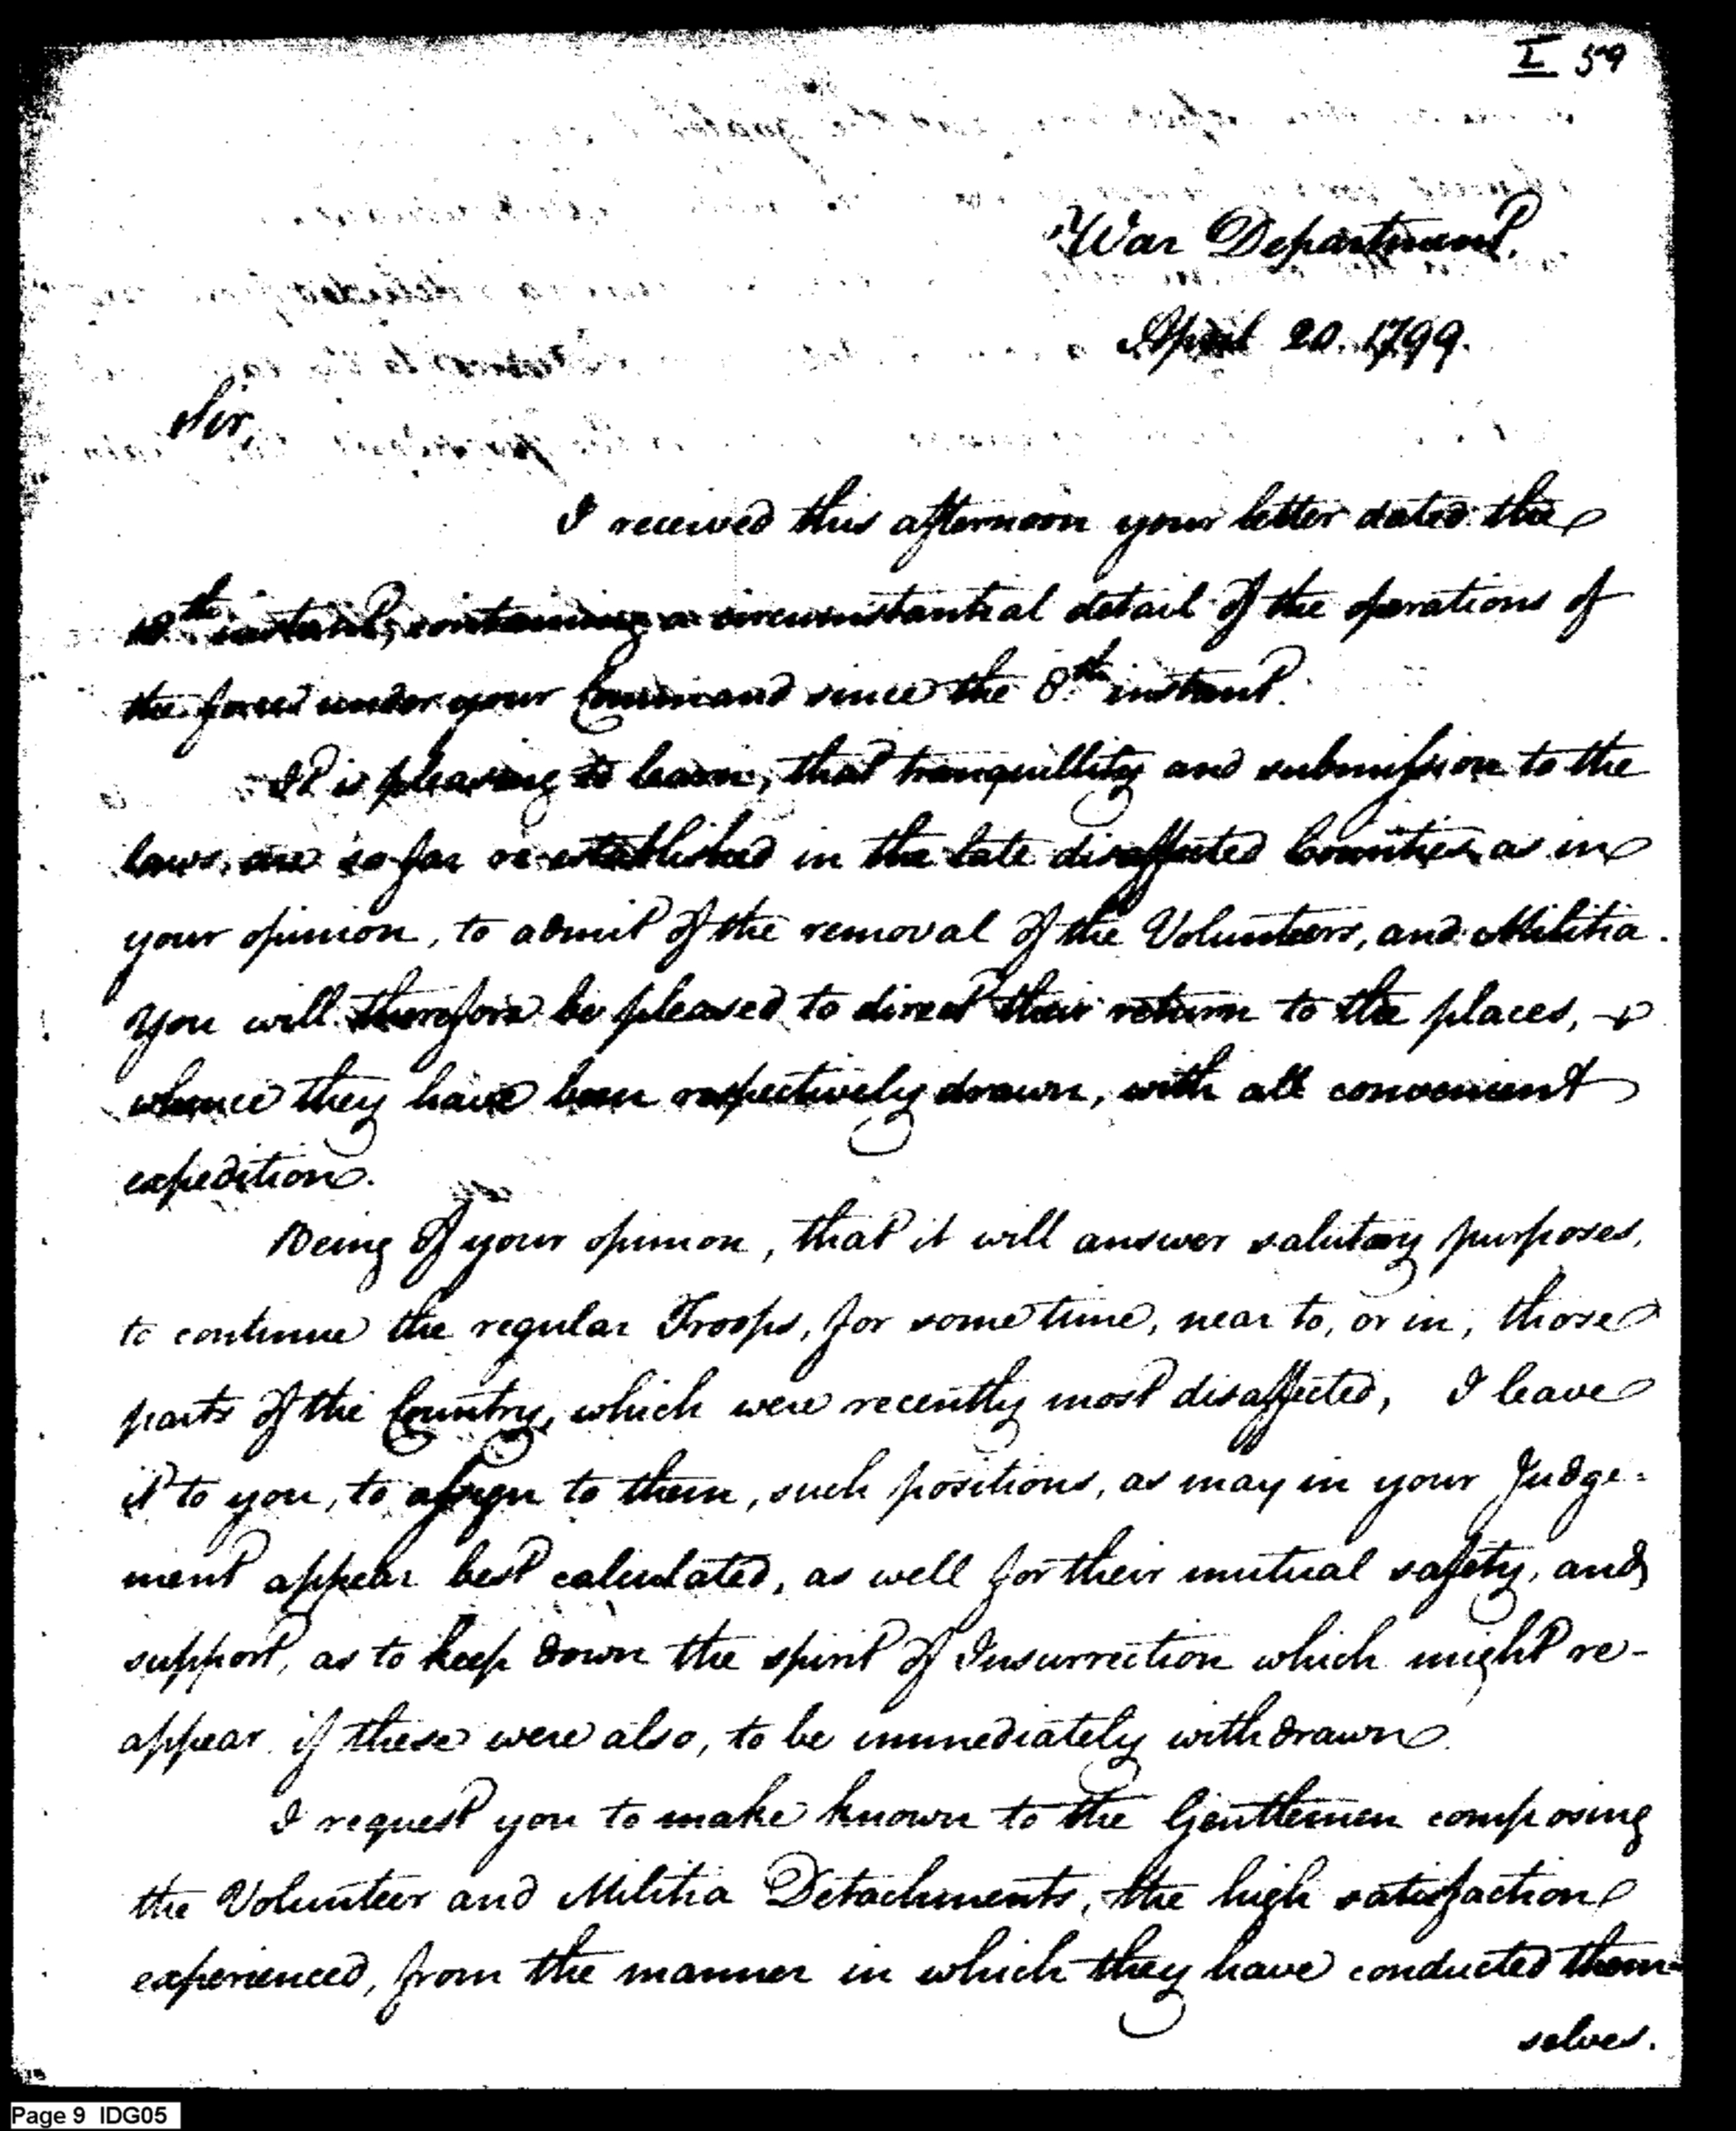 I 59
War Department.
April 20. 1799.
Sir,
I received this afternoon your letter dated the
18th instant, containing a circumstantial detail of the operations of
the force under your Command since the 8th instant.
It is pleasing to learn, that tranquillity and submission to the
laws, are so far re-established in the late disaffected Counties, as in
your opinion, to admit of the removal of the Volunteers, and Militia.
You will therefore be pleased to direct their return to the places,
whence they have been respectively drawn, with all convenient
expedition.
Being of your opinion, that it will answer salutary purposes,
to continue the regular Troops, for some time, near to, or in, those
parts of the Country, which were recently most disaffected, I leave
it to you, to assign to them, such positions, as may in your Judge-
ment appear best calculated, as well for their mutual safety, and
support, as to keep down the spirit of Insurrection which might re-
appear if these were also, to be immediately withdrawn.
I request you to make known to the Gentlemen composing
the Volunteer and Militia Detachments, the high satisfaction
experienced, from the manner in which they have conducted them-
selves.
Page 9 IDG05